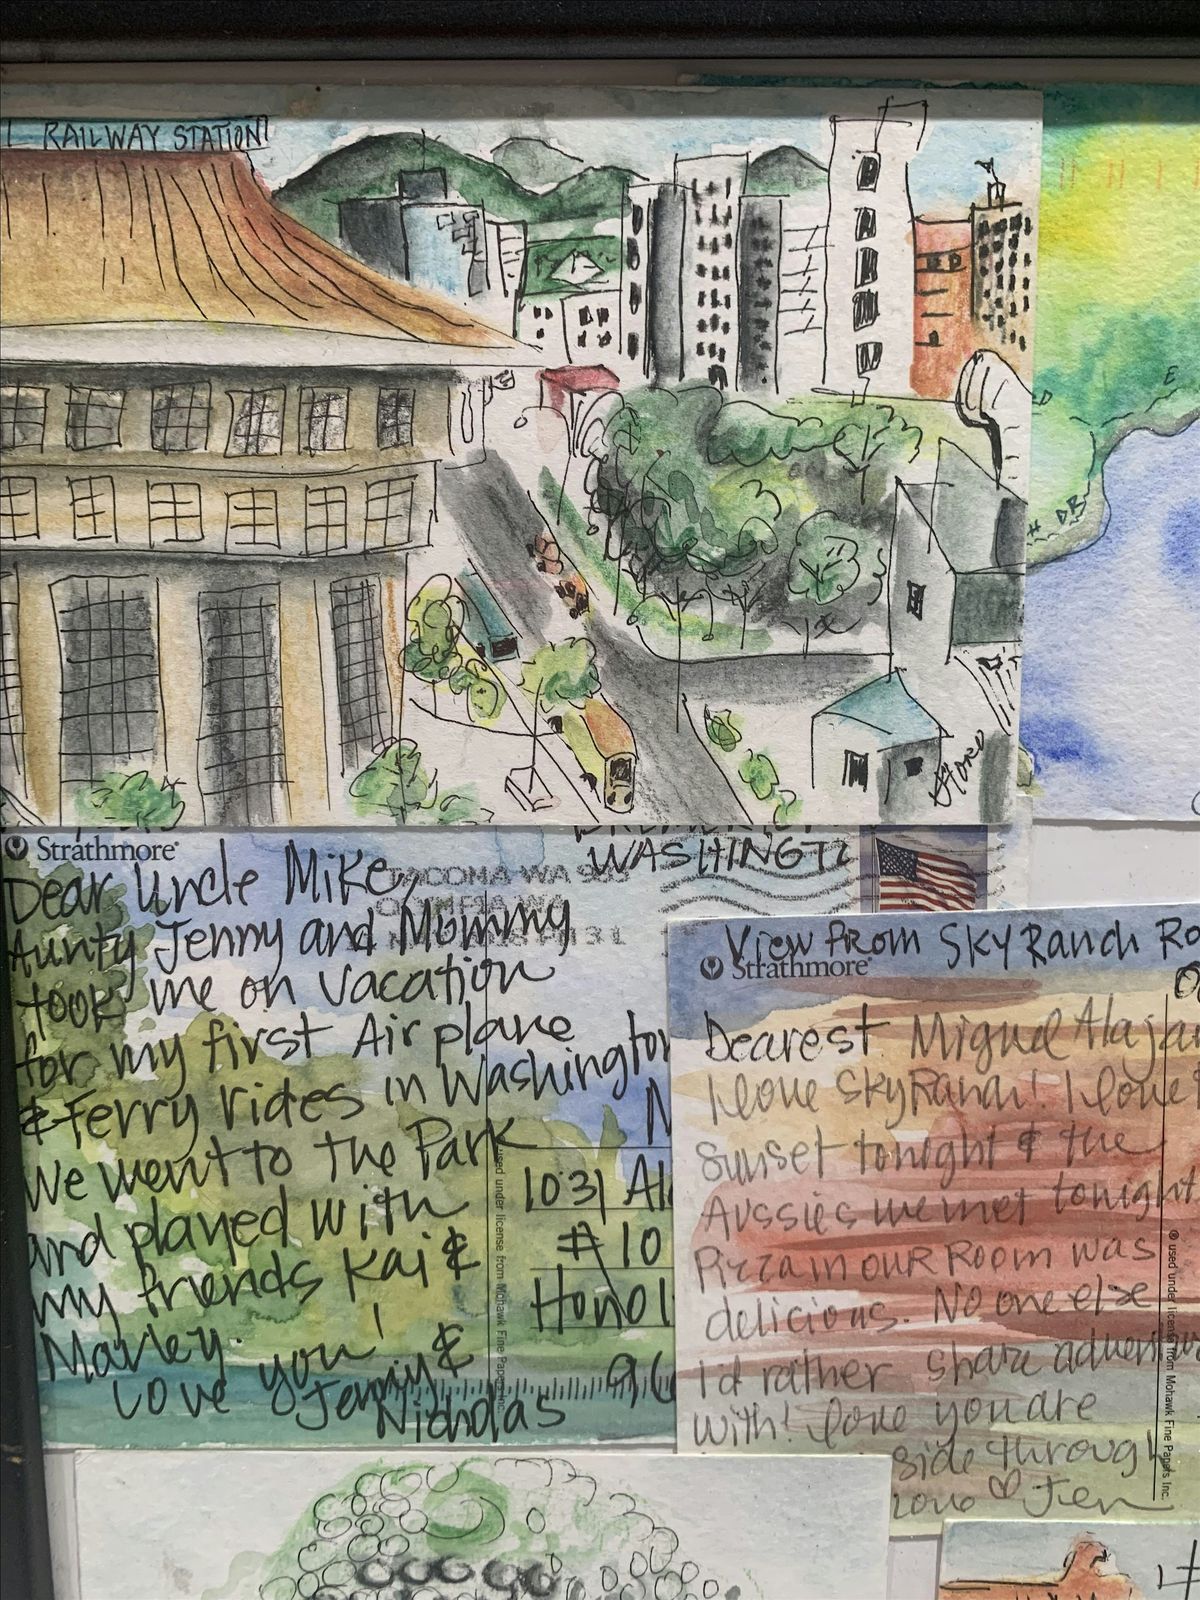 L RAILWAY STATION
Strathmore
Dear Uncle Mike,
Aunty Jenny and Mommy
took me on vacation
for my first Airplane
& Ferry rides in Washington
We went to the Park
and played with
my friends Kai &
Marley.
Love you!
Jenny &
Nicholas
WASHINGT
TACOMA WA
OLYMPIA WA
1031 Al
#10
Honol
used under license from Mohawk Fine Papers Inc.
View from Sky Ranch Ro
Strathmore
Dearest Miguel Alajar
I love SkyRanch! I love
Sunset tonight & the
Aussies we met tonight
Pizza in our Room was
delicious. No one else
I'd rather share
with! love you are
side through
love ♡ Jen
® used under license from Mohawk Fine Papers Inc.